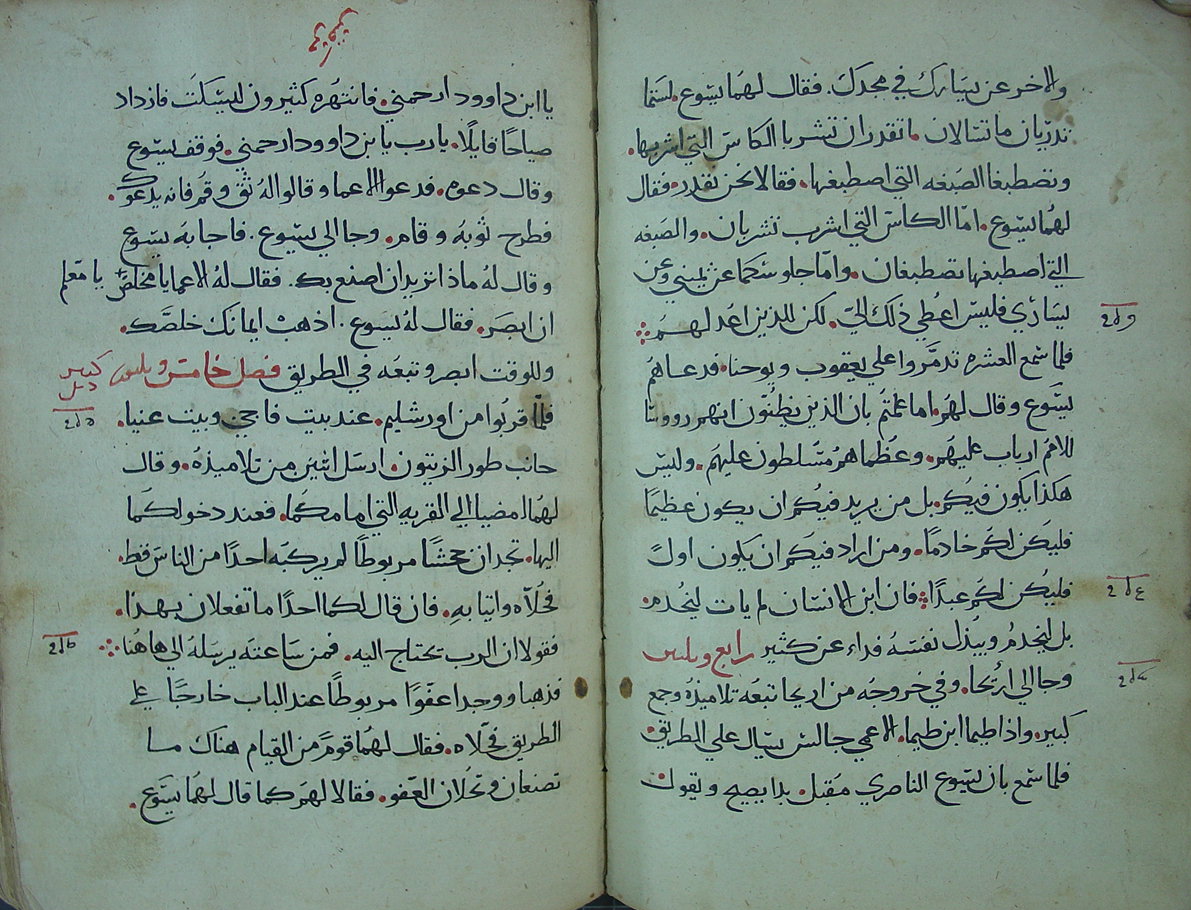 والاخر عن يسارك في مجدك. فقال لهما يسوع. لستما
تدريان ما تسالان. اتقدران تشربا الكاس التي اشربها.
وتصطبغا الصبغه التي اصطبغها. فقالا نحن نقدر. فقال
لهما يسوع. امّا الكاس التي اشرب تشربان. والصبغه
التي اصطبغها تصطبغان. وامّا جلوسكما عن يميني وعن
يساري فليس اعطي ذلك اليّ. لكن للذين اعد لهم
فلما سمع العشره تدمّروا علي يعقوب ويوحنا. فدعاهم
يسوع وقال لهم. اما علمتم بان الذين يظنون انهم رووسا
للامم ارباب عليهم. وعظماهم مسلطون عليهم. وليس
هكذا يكون فيكم. بل من يريد فيكم ان يكون عظيمًا
فليكن لكم خادمًا. ومن اراد فيكم ان يكون اولً
فليكن لكم عبدًا. فان ابن الانسان لم يات ليخدم.
بل ليخدم ويبذل نفسه فداء عن كثير رابع وبلثين
وجا الي اريحا. وفي خروجه من اريحا تبعه تلاميذه وجمع
كبير. واذا طيما ابن طيما. الاعمي جالس يسال علي الطريق.
فلما سمع بان يسوع الناصري مقبل. بدا يصيح ويقول.
يا ابن داوود ارحمني. فانتهره كثيرون ليسكت فازداد
صياحًا قايلًا. يا رب يا بن داوود ارحمني. فوقف يسوع
وقال دعوه. فدعوا الاعما وقالوا له ثق وقم فانه يدعوك.
فطرح ثوبه وقام. وجا الي يسوع. فاجابه يسوع
وقال له ماذا تريد ان اصنع بك. فقال له الاعما يا مخلص يا معلم
ان ابصر. فقال له يسوع. اذهب ايمانك خلصك.
وللوقت ابصر وتبعه في الطريق فصل خامس وبلثين
فلما قربوا من اورشليم. عند بيت فاجي وبيت عنيا.
جانب طور الزيتون. ارسل اثنين من تلاميذه. وقال
لهما امضيا الي القريه التي امامكما. فعند دخولكما
اليها. تجدان جحشًا مربوطًا لم يركبه احدًا من الناس قط.
فحُلاه واتيا به. فان قال لكما احدًا ما تفعلان بهذا.
فقولا ان الرب يحتاج اليه. فمن ساعته يرسله الي هاهنا
فذهبا ووجدا عفوًا مربوطًا عند الباب خارجًا علي
الطريق فحلاه. فقال لهما قوم من القيام هناك ما
تصنعان وتحلان العفو. فقالا لهم كما قال لهما يسوع.